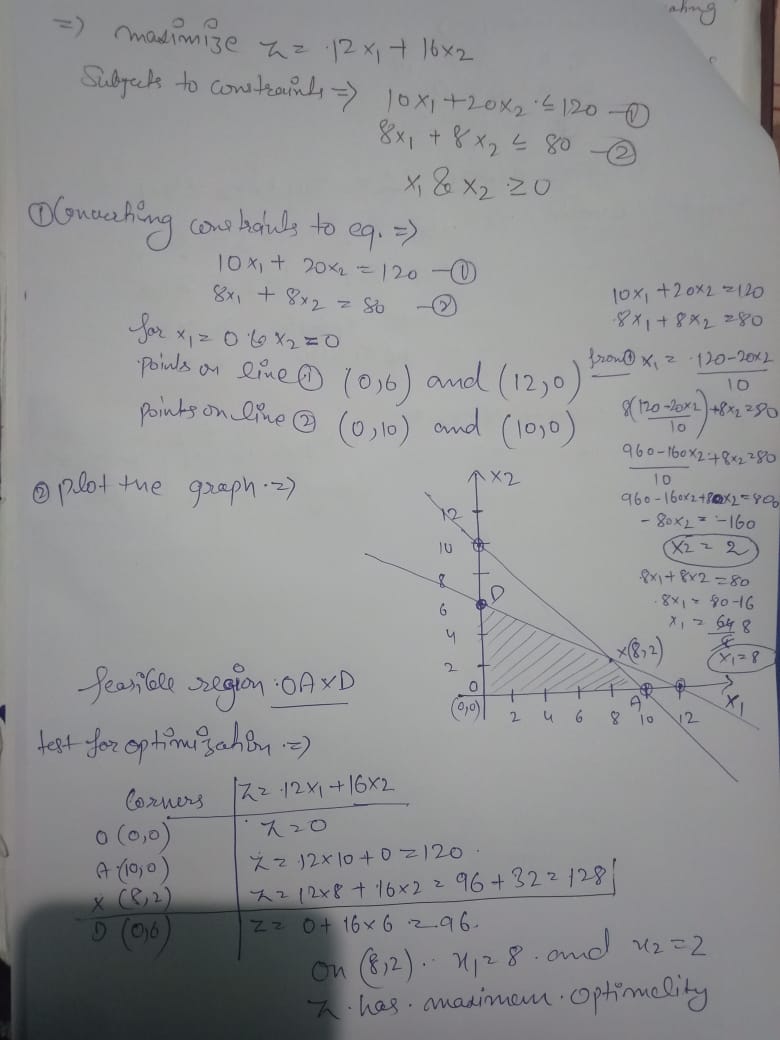 ahing
=) maximize z = 12x₁ + 16x₂
Subjects to constraints =) 10x₁ + 20x₂ ≤ 120 —①
8x₁ + 8x₂ ≤ 80 —②
x₁ & x₂ ≥ 0
① Converting constraints to eq. =)
10x₁ + 20x₂ = 120 —①
8x₁ + 8x₂ = 80 —②
for x₁ = 0 & x₂ = 0
Points on line ① (0,6) and (12,0)
Points on line ② (0,10) and (10,0)
10x₁ + 20x₂ = 120
8x₁ + 8x₂ = 80
from ① x₁ = 120-20x2
10
8(120-20x2)+8x₂ = 80
10
960-160x2 + 8x₂ = 80
10
960-160x2+80x2 = 800
- 80x₂ = -160
x₂ = 2
8x₁ + 8x2 = 80
8x₁ = 80-16
x₁ = 64 8
8
x₁ = 8
② plot the graph =)
x2
12
10
8
6
4
2
0
D
x(8,2)
A
(0,0)
2 4 6 8 10 12
x₁
feasible region OAXD
test for optimization =)
Corners z = 12x₁ + 16x2
O (0,0) z = 0
A (10,0) z = 12x10 + 0 = 120
X (8,2) z = 12x8 + 16x2 = 96 + 32 = 128
D (0,6) z = 0 + 16x6 = 96.
On (8,2) x₁ = 8 and x₂ = 2
z has maximum optimelity